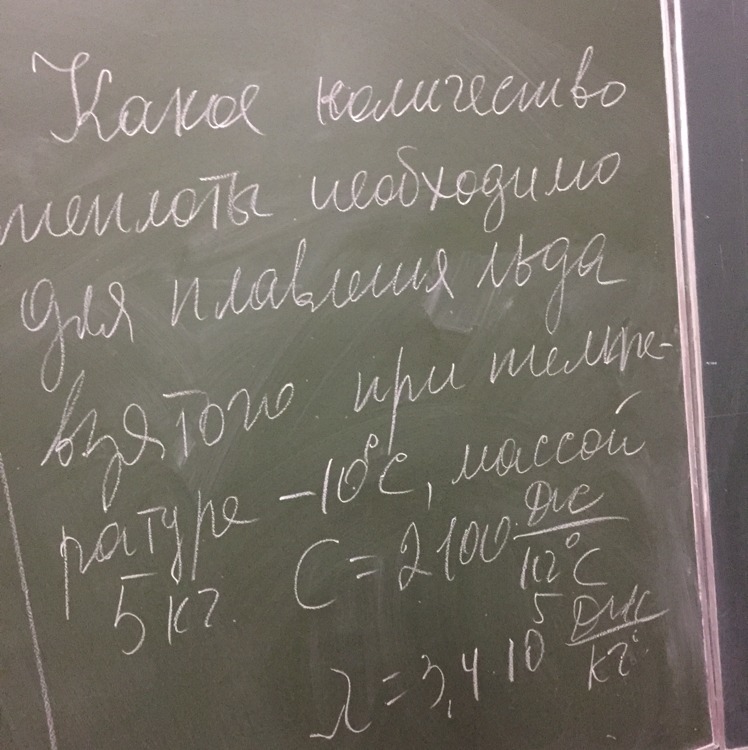 Какое количество
теплоты необходимо
для плавления льда
взятого при темпе-
ратуре -10°C, массой
5 кг. C = 2100 Дж/кг°C
λ = 3,4·10⁵ Дж/кг